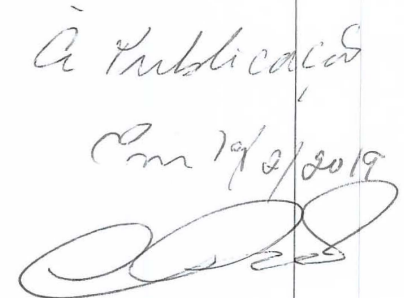 À Publicação
Em 19/2/2019